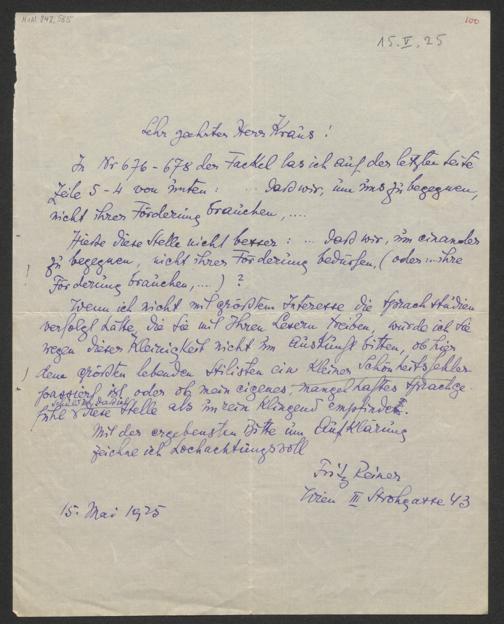 H.I.N. 242,585
100
15. V. 25
Sehr geehrter Herr Kraus!
In Nr 676-678 der Fackel las ich auf der letzten Seite
Zeile 5-4 von unten: ... daß wir, um uns zu begegnen,
nicht ihrer Förderung brauchen, ....
Hieße diese Stelle nicht besser: ... daß wir, um einander
zu begegnen, nicht ihrer Förderung bedürfen, (oder ... ihre
Förderung brauchen, ...) ?
Wenn ich nicht mit größtem Interesse die Sprachstudien
verfolgt hätte, die Sie mit Ihren Lesern treiben, würde ich Sie
wegen dieser Kleinigkeit nicht um Auskunft bitten, ob hier
dem größten lebenden Stilisten ein kleiner Schönheitsfehler
passiert ist oder ob mein eigenes, mangelhaftes Sprachge-
fühl diese Stelle als unrein klingend empfindet.
Mit der ergebensten Bitte um Aufklärung
zeichne ich hochachtungsvoll
Fritz Reiner
Wien III Strohgasse 43
15. Mai 1925